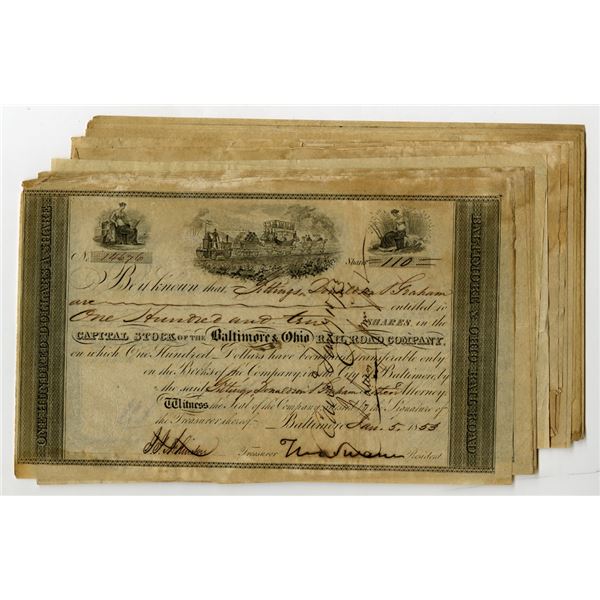 No. 14676 Shares 110
Be it known that Gittings, Donaldson & Graham
are entitled to
One Hundred and ten SHARES in the
CAPITAL STOCK OF THE Baltimore & Ohio RAIL ROAD COMPANY,
on which One Hundred Dollars have been paid transferable only
on the Books of the Company, in the City of Baltimore, by
the said Gittings, Donaldson & Graham Attorney
Witness the Seal of the Company by the Signature of
the Treasurer thereof. Baltimore Jan. 5. 1853
Treasurer President
BALTIMORE & OHIO RAIL ROAD